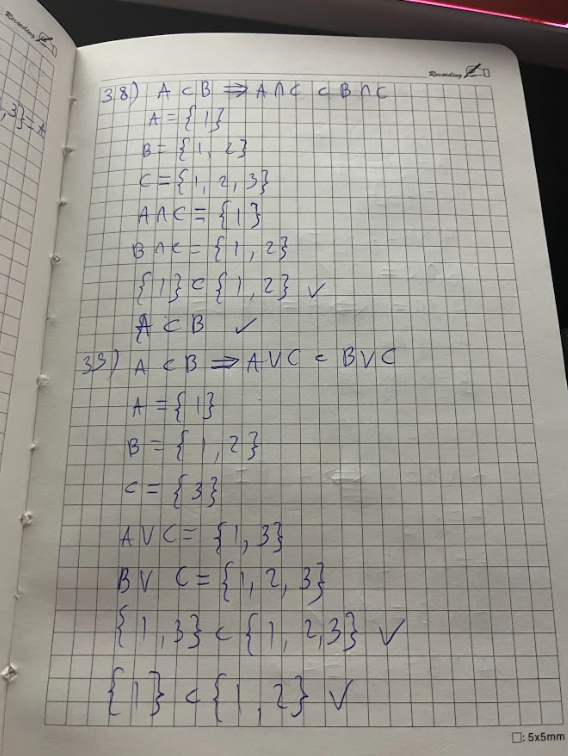 Recording
Recording
,3}=A
38) A ⊂ B ⟹ A∩C ⊂ B∩C
A = {1}
B = {1, 2}
C = {1, 2, 3}
A∩C = {1}
B∩C = {1, 2}
{1} ⊂ {1, 2} ✓
A ⊂ B ✓
39) A ⊂ B ⟹ A∪C ⊂ B∪C
A = {1}
B = {1, 2}
C = {3}
A∪C = {1, 3}
B∪C = {1, 2, 3}
{1, 3} ⊂ {1, 2, 3} ✓
{1} ⊂ {1, 2} ✓
□: 5x5mm